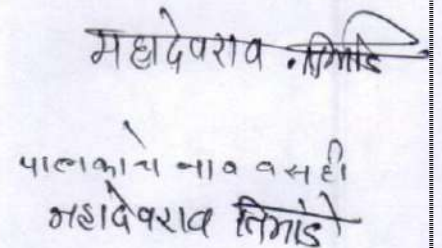 महादेवराव
पालकाचे नाव व सही
महादेवराव तिमांडे